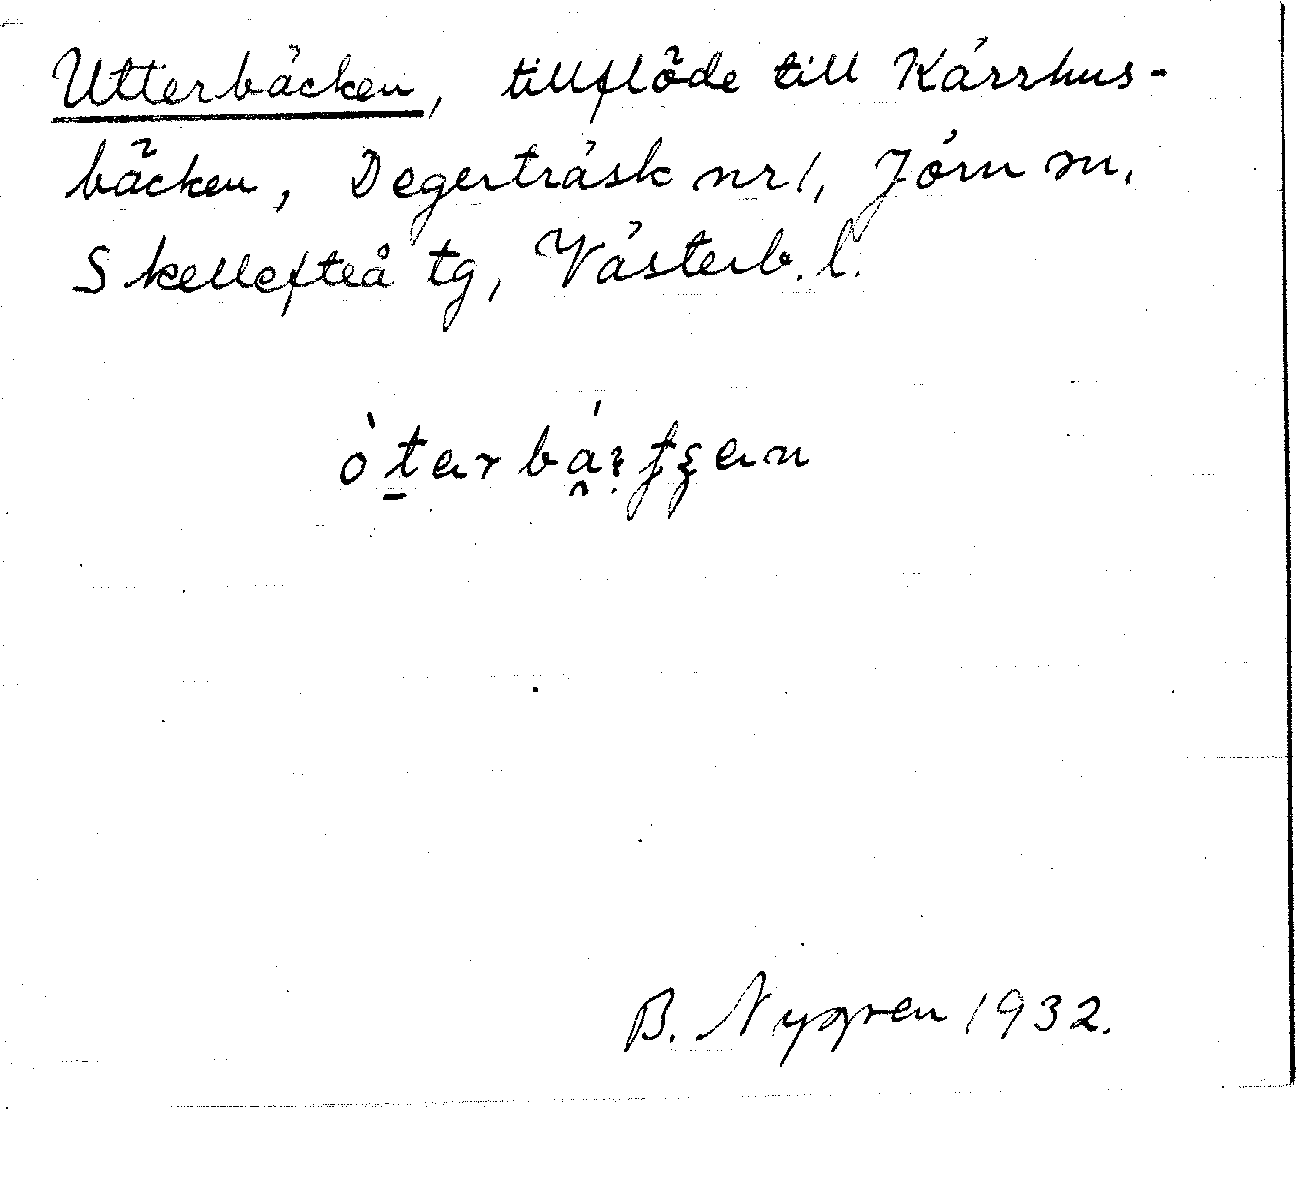 Utterbäcken, tillflöde till Kärrhus-
bäcken, Degerträsk nr 1, Jörn sn,
Skellefteå tg, Västerb. l.
B. Nygren 1932.